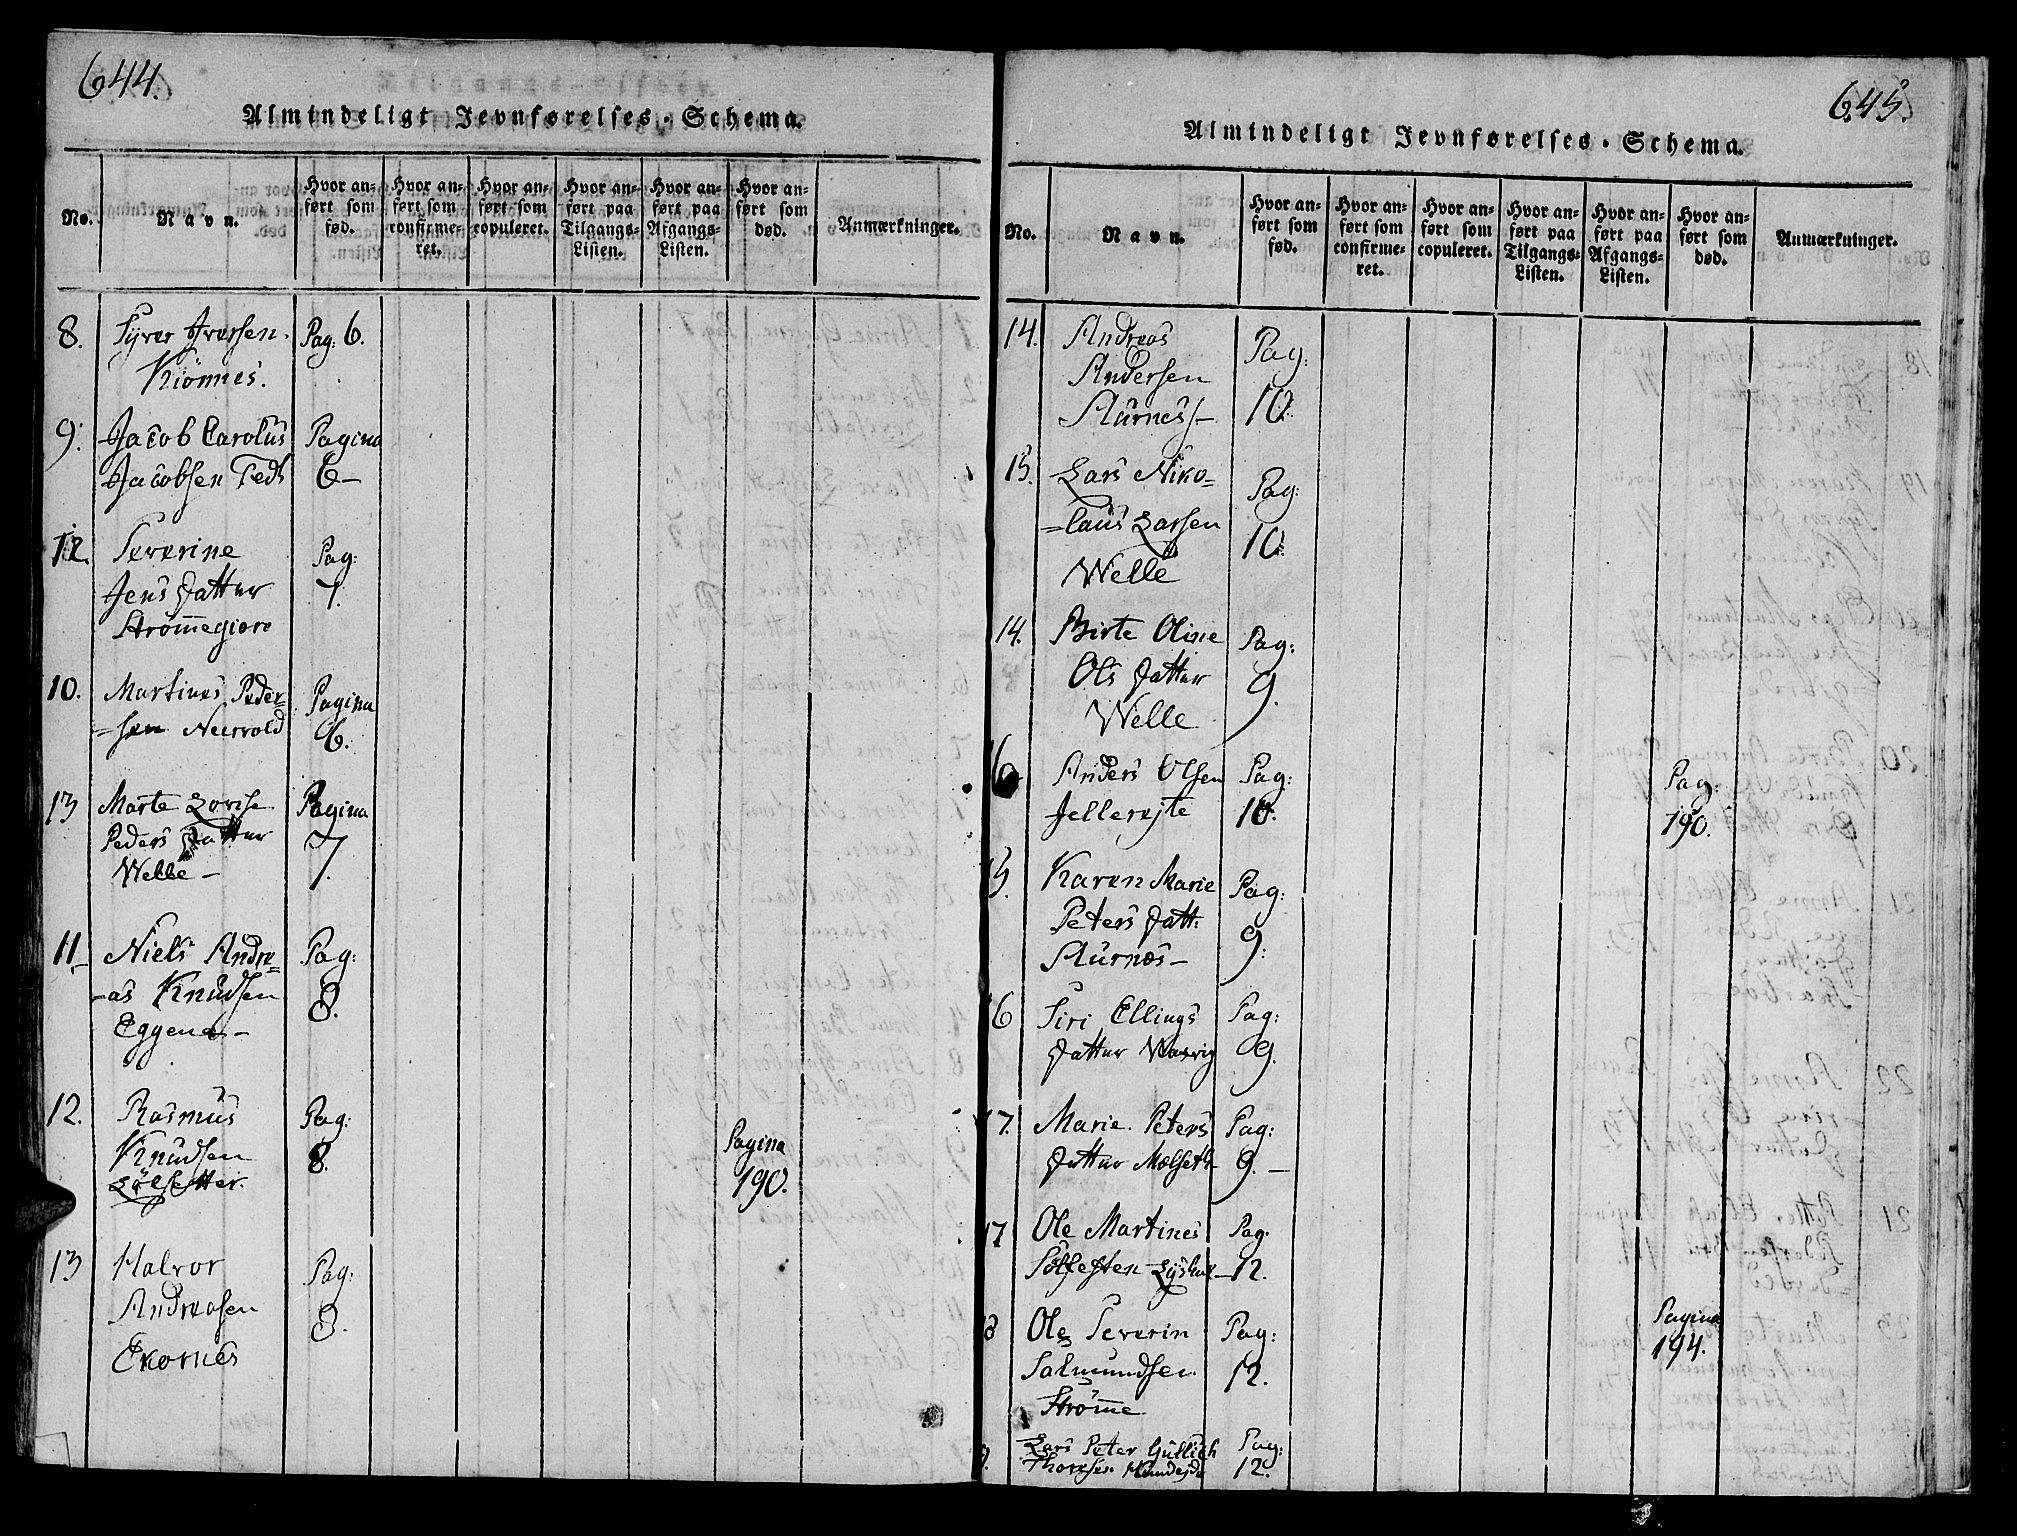 644.
Almindeligt Jevnførelses-Schema.
No.
Navn.
Hvor anført som fød.
Hvor anført som confirmeret.
Hvor anført som copuleret.
Hvor anført paa Tilgangs-Listen.
Hvor anført paa Afgangs-Listen.
Hvor anført som død.
Anmærkninger.
8. Syver Iversen Pag: 6.
Kiønnes.
9. Jacob Carolus Pagina
Jacobsen 6-
12. Severine Pag:
Jens Datter 7.
Strømmegiere
10. Martines Peder= Pagina
=sen Neervold 6.
13 Marte Lovise Pagina
Peders Datter 7.
Welle-
11- Niels Andre= Pag:
=as Knudsen 8.
Eggenæ-
12. Rasmus Pag:
Knudsen 8. Pagina
Lølsetter. 190.
13 Halvor Pag:
Andreasen 8.
Ekornes
645.
Almindeligt Jevnførelses-Schema.
No.
Navn.
Hvor anført som fød.
Hvor anført som confirmeret.
Hvor anført som copuleret.
Hvor anført paa Tilgangs-Listen.
Hvor anført paa Afgangs-Listen.
Hvor anført som død.
Anmærkninger.
14. Andreas Pag:
Andersen 10.
Aurnes-
15. Lars Niko= Pag:
=laus Larsen 10.
Welle
14. Birte Oline Pag:
Ols Datter 9.
Welle
16 Anders Olsen Pag: Pag:
Jellerøjte 10. 190.
15. Karen Marie Pag:
Peters Datt: 9:
Aurnes-
16 Siri Ellings Pag:
Datter 9.
17. Marie Peters Pag:
Datter Mælseth 9.-
17 Ole Martines Pag.
12.
18 Ole Severin Pag: Pagina
Salmundsen 12. 194.
Strømme
Lars Peter Gullich Pag:
Thoresen 12.